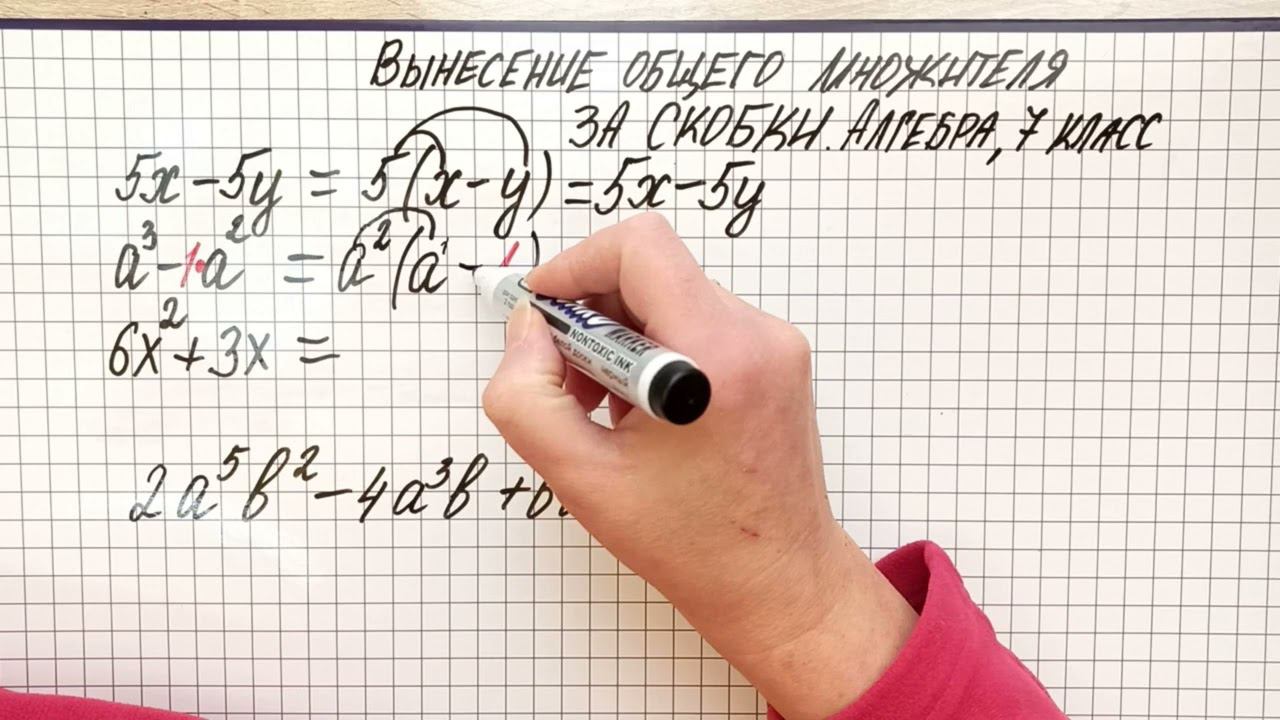 ВЫНЕСЕНИЕ ОБЩЕГО МНОЖИТЕЛЯ
ЗА СКОБКИ. АЛГЕБРА, 7 КЛАСС
5x − 5y = 5(x − y) = 5x − 5y
a³ − 1·a² = a²(a¹ − 1)
6x² + 3x =
2a⁵b² − 4a³b +
MARKER
NONTOXIC INK